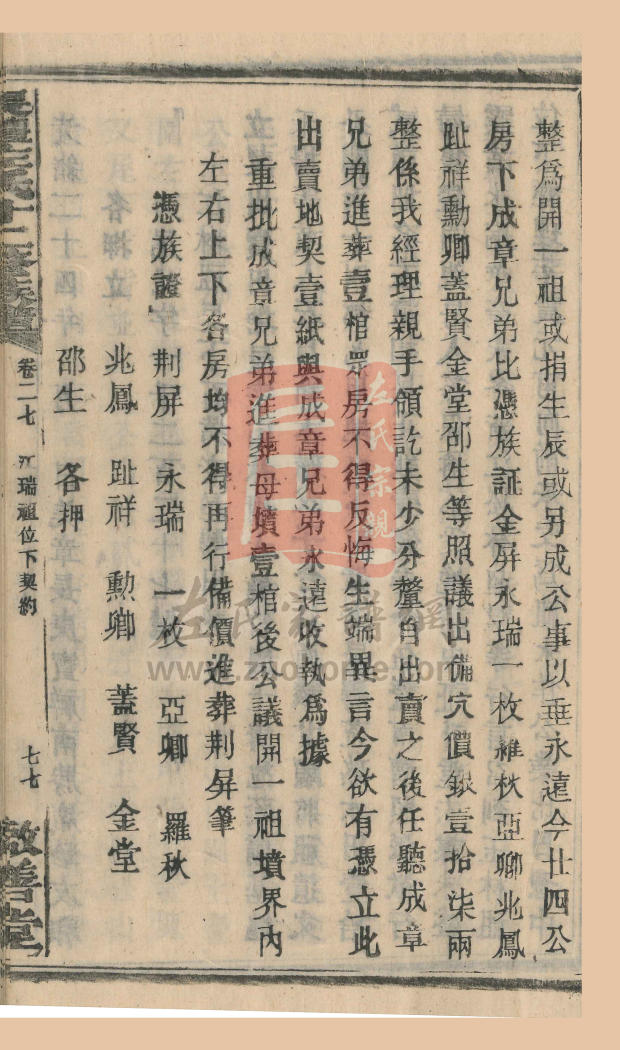 整為開一祖或捐生辰或另成公事以垂永遠今廿四公
房下成章兄弟比憑族証金屏永瑞一枚羅秋亞卿兆鳳
趾祥勳卿蓋賢金堂邵生等照議出備穴價銀壹拾柒兩
整係我經理親手領訖未少分釐自出賣之後任聽成章
兄弟進葬壹棺眾房不得反悔生端異言今欲有憑立此
出賣地契壹紙與成章兄弟永遠收執為據
重批成章兄弟進葬母墳壹棺後公議開一祖墳界內
左右上下各房均不得再行備價進葬荆屏筆
憑族證 荆屏 永瑞 一枚 亞卿 羅秋
兆鳳 趾祥 勳卿 蓋賢 金堂
邵生 各押
氏十二修族譜 卷二七 江瑞祖位下契約 七七 敬善堂
左氏宗親
左氏家譜網